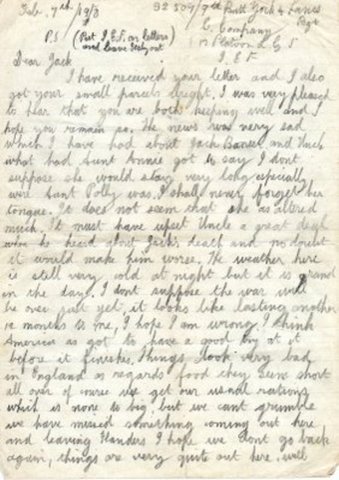 Feb. 7th /1918 32509/9th Batt York & Lancs Regt
C. Company
P.S (Put I.E.F. on letters and leave Italy out 12 Platoon L G S
I.E.F.
Dear Jack
I have received your letter and I also
got your small parcels alright, I was very pleased
to hear that you are both keeping well and I
hope you remain so. The news was very sad
which I have had about Jack and Uncle
what had Aunt Annie got to say I dont
suppose she would stay very long especially
were Aunt Polly was. I shall never forget her
tongue. It does not seem that she as altered
much. It must have upset Uncle a great deal
when he heard about Jack death and no doubt
it would make him worse. The weather here
is still very cold at night but it is grand
in the day. I dont suppose the war will
be over just yet, it looks like lasting another
12 months to me, I hope I am wrong. I think
America as got to have a good try at it
before it finishes. Things look very bad
in England as regards food they seem short
all over of course we get our usual rations
which is none to big, but we cant grumble
we have missed something coming out here
and leaving Flanders I hope we dont go back
again, things are very quite out here. well